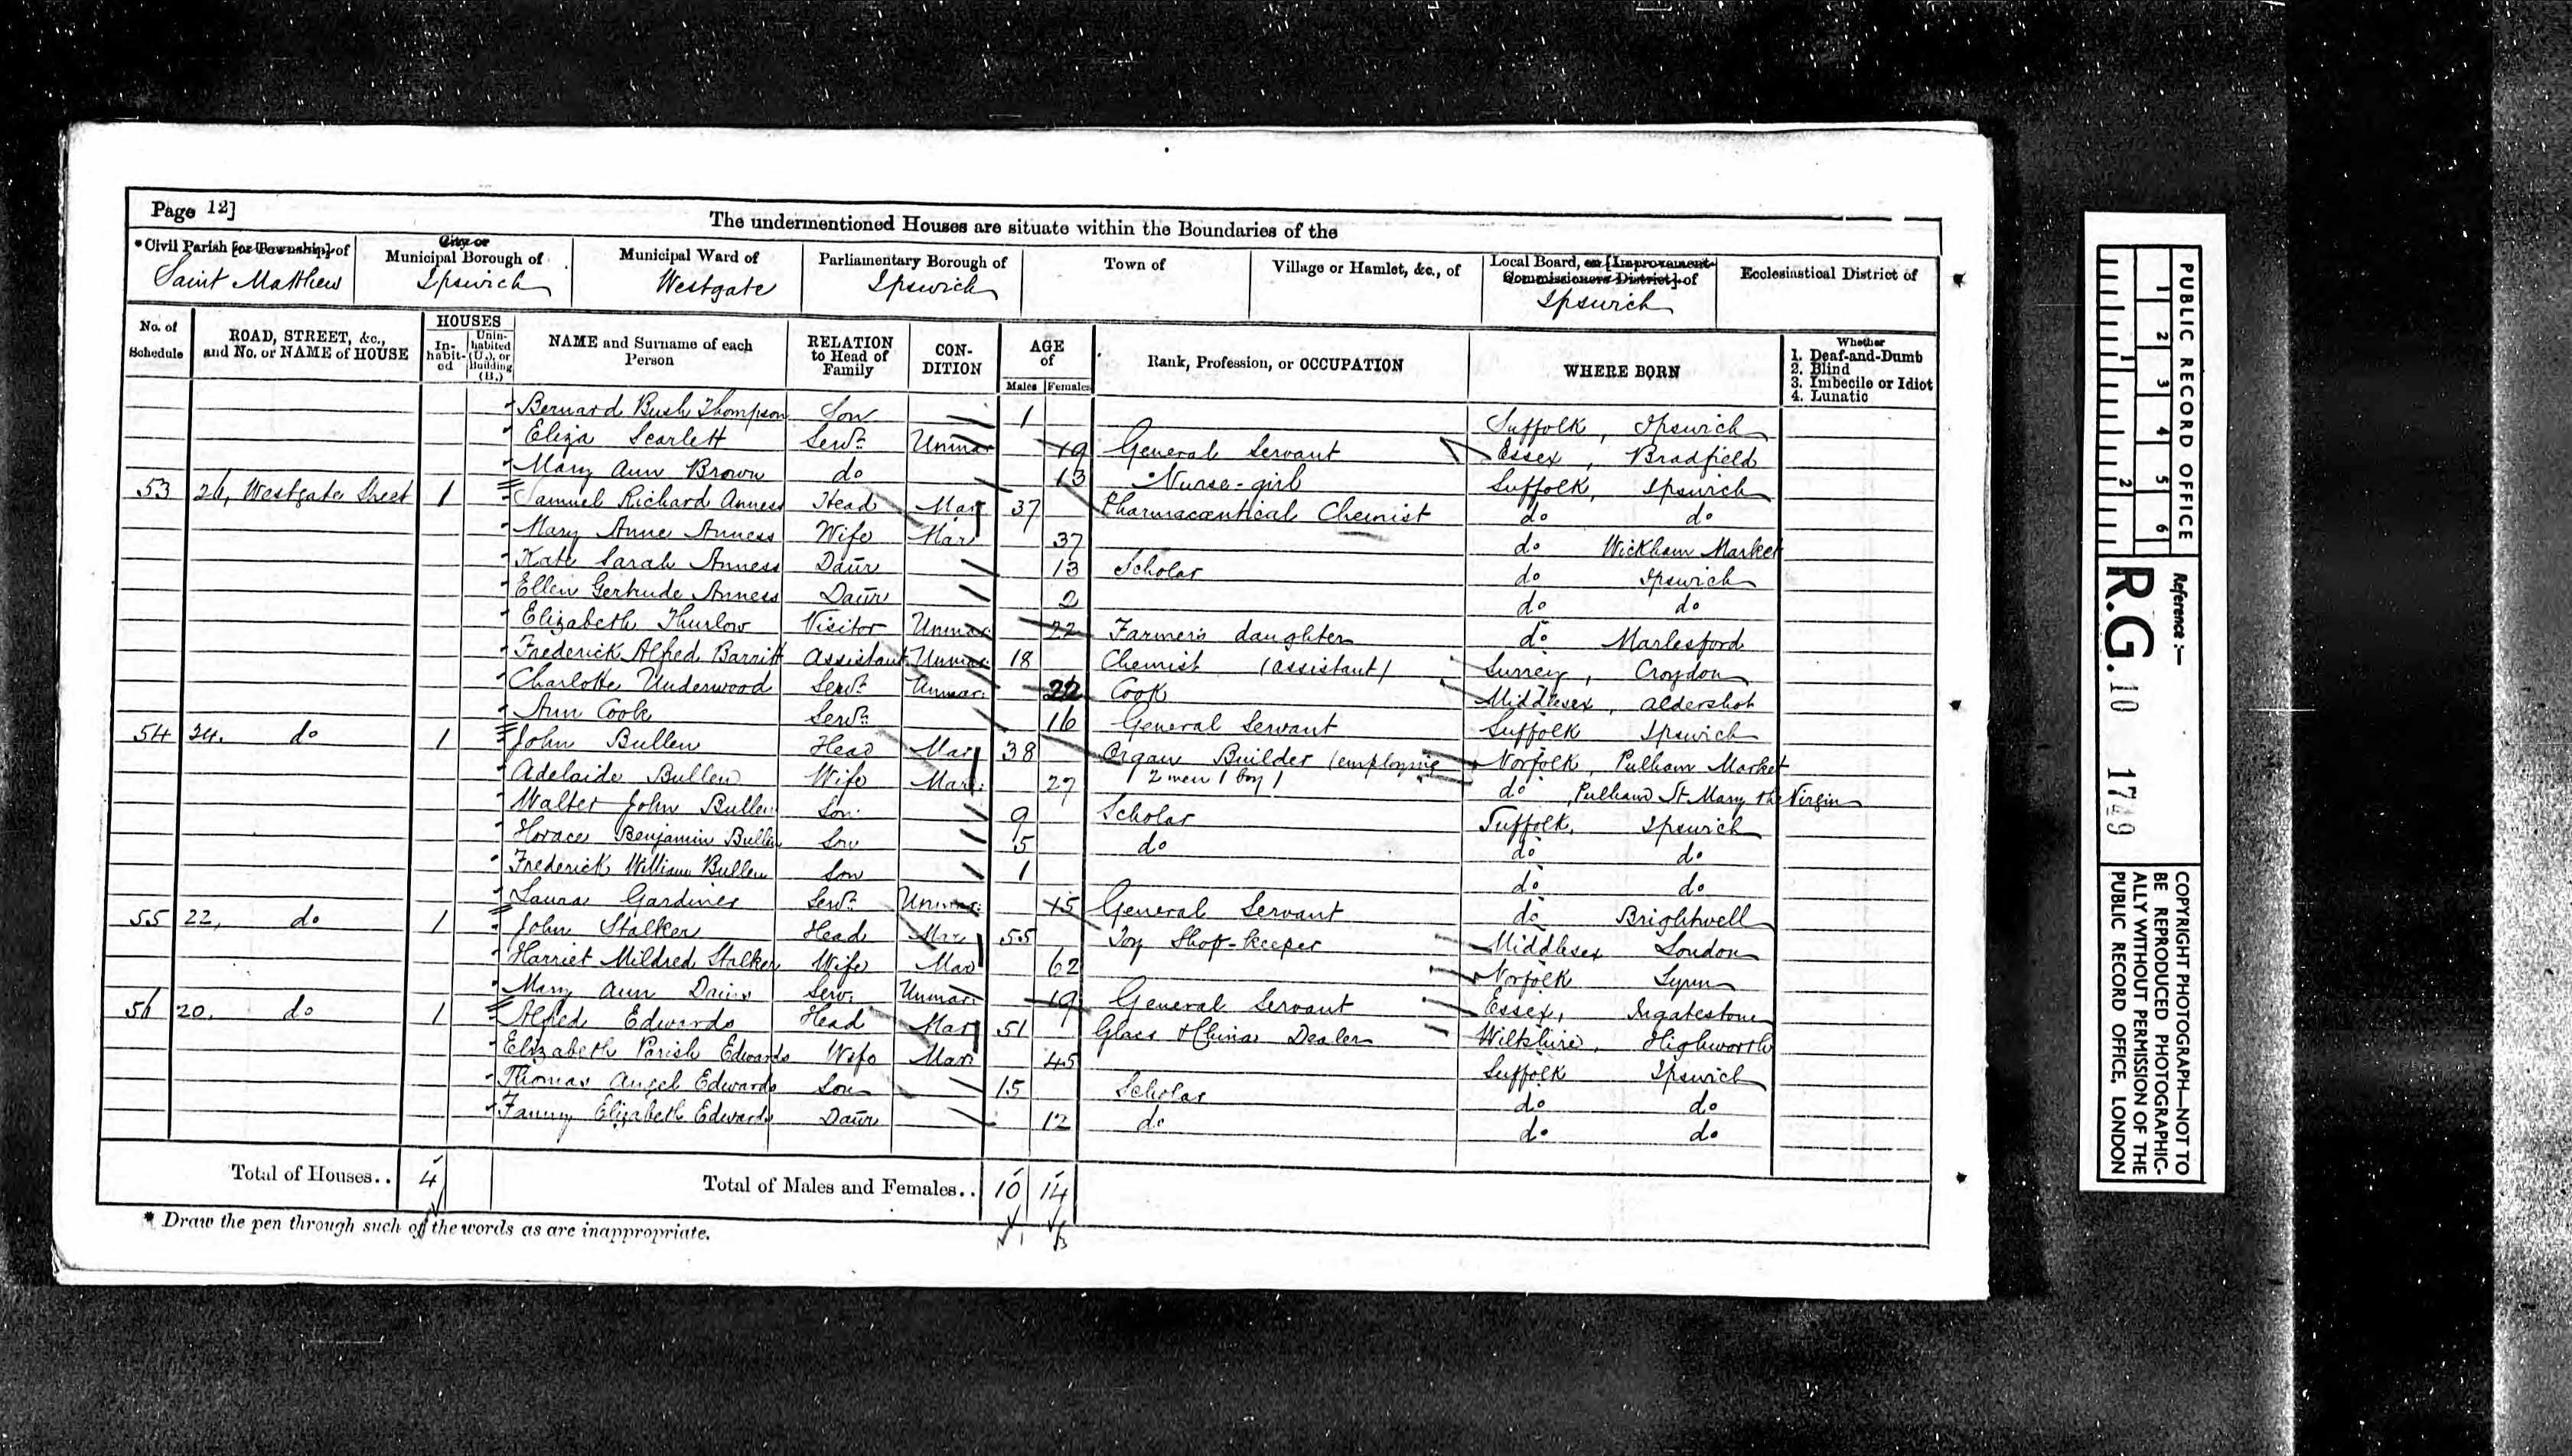 Page 12]
The undermentioned Houses are situate within the Boundaries of the
*Civil Parish [or Township] of Saint Matthew
City or Municipal Borough of Ipswich
Municipal Ward of Westgate
Parliamentary Borough of Ipswich
Town of
Village or Hamlet, &c., of
Local Board, or [Improvement Commissioners District] of Ipswich
Ecclesiastical District of
No. of Schedule
ROAD, STREET, &c., and No. or NAME of HOUSE
HOUSES
In-habit-ed
Unin-habited (U.), or Building (B.)
NAME and Surname of each Person
RELATION to Head of Family
CON-DITION
AGE of
Males Females
Rank, Profession, or OCCUPATION
WHERE BORN
Whether
1. Deaf-and-Dumb
2. Blind
3. Imbecile or Idiot
4. Lunatic
Bernard Bush Thompson Son 1 Suffolk, Ipswich
Eliza Scarlett Servt Unmar 19 General Servant Essex, Bradfield
Mary Ann Brown do 13 Nurse-girl Suffolk, Ipswich
53 26, Westgate Street 1 Samuel Richard Anness Head Mar 37 Pharmaceutical Chemist do do
Mary Anne Anness Wife Mar 37 do Wickham Market
Kate Sarah Anness Daur 13 Scholar do Ipswich
Ellen Gertrude Anness Daur 2 do do
Elizabeth Thurlow Visitor Unmar 22 Farmer's daughter do Marlesford
Frederick Alfred Barritt Assistant Unmar 18 Chemist (assistant) Surrey, Croydon
Charlotte Underwood Servt Unmar 22 Cook Middlesex, Aldershot
Ann Cook Servt 16 General Servant Suffolk Ipswich
54 24. do 1 John Bullen Head Mar 38 Organ Builder (employing Norfolk, Pulham Market
2 men 1 boy)
Adelaide Bullen Wife Mar 27 do Pulham St Mary the Virgin
Walter John Bullen Son 9 Scholar Suffolk, Ipswich
Horace Benjamin Bullen Son 5 do do do
Frederick William Bullen Son 1 do do
Laura Gardiner Servt Unmar 15 General Servant do Brightwell
55 22, do 1 John Stalker Head Mar 55 Toy Shop-keeper Middlesex London
Harriet Mildred Stalker Wife Mar 62 Norfolk Lynn
Mary Ann Servt Unmar 19 General Servant Essex, Ingatestone
56 20. do 1 Alfred Edwards Head Mar 51 Glass & China Dealer Wiltshire, Highworth
Elizabeth Parish Edwards Wife Mar 45 Suffolk Ipswich
Thomas Angel Edwards Son 15 Scholar do do
Fanny Elizabeth Edwards Daur 12 do do do
Total of Houses.. 4
Total of Males and Females.. 10 14
* Draw the pen through such of the words as are inappropriate.
PUBLIC RECORD OFFICE
1 2 3 4 5 6
1 2
Reference :—
R.G. 10 1749
COPYRIGHT PHOTOGRAPH—NOT TO
BE REPRODUCED PHOTOGRAPHIC-
ALLY WITHOUT PERMISSION OF THE
PUBLIC RECORD OFFICE, LONDON